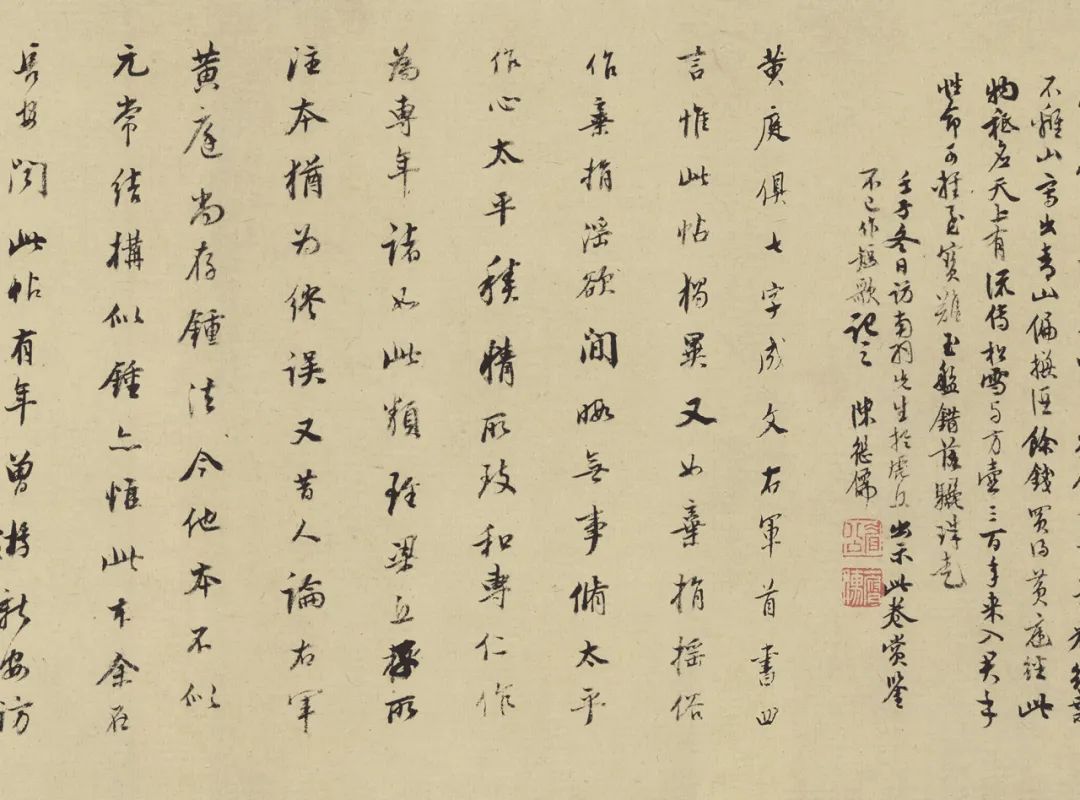 不離山寫出青山偏換酒餘錢買得黃庭經此
物秘名天上有流傳松雪与方壺三百年來入君手
性命可輕至寶難玉盤錯落驪珠走
壬子冬日訪南羽先生於虎丘出示此卷賞鑒
不已作短歌記之 陳繼儒
眉公
黃庭俱七字成文右軍首書四
言惟此帖獨異又如棄捐搖俗
作棄捐淫欲閒暇無事脩太平
作心太平積精所致和專仁作
為專年諸如此類殆梁丘所
注本猶为誤又昔人論右軍
黃庭尚存鍾法今他本不似
元常结構似鍾亦惟此本余在
長安聞此帖有年曾游新安訪